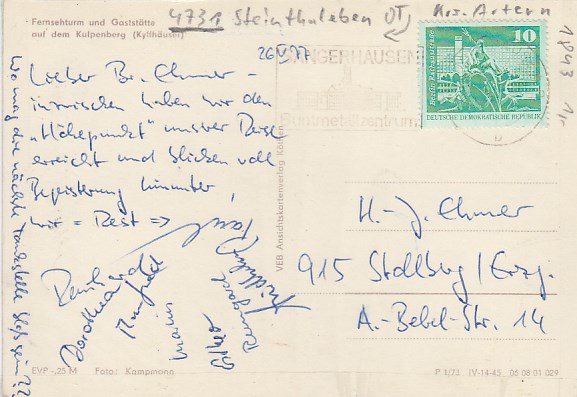 4731 Steinthaleben OT Krs. Artern
- Fernsehturm und Gaststätte
auf dem Kulpenberg (Kyffhäuser)
26 V 77
Lieber Br. Chmer –
inzwischen haben wir den
„Höhepunkt" unsrer Reise
erreicht und blicken voll
Begeisterung hinunter,
wir = Rest =>
Paul
Reinhard
Dorothea
Manfred
Friedhelm
Wo mag die nächste Tankstelle bloß sein??
SANGERHAUSEN
Buntmetallzentrum
10
DEUTSCHE DEMOKRATISCHE REPUBLIK
1843
VEB Ansichtskartenverlag Köthen
H.-J. Chmer
915 Stollberg/Erzg.
A.-Bebel-Str. 14
EVP -,25 M Foto: Kampmann
P 1/73 IV-14-45 06 08 01 029